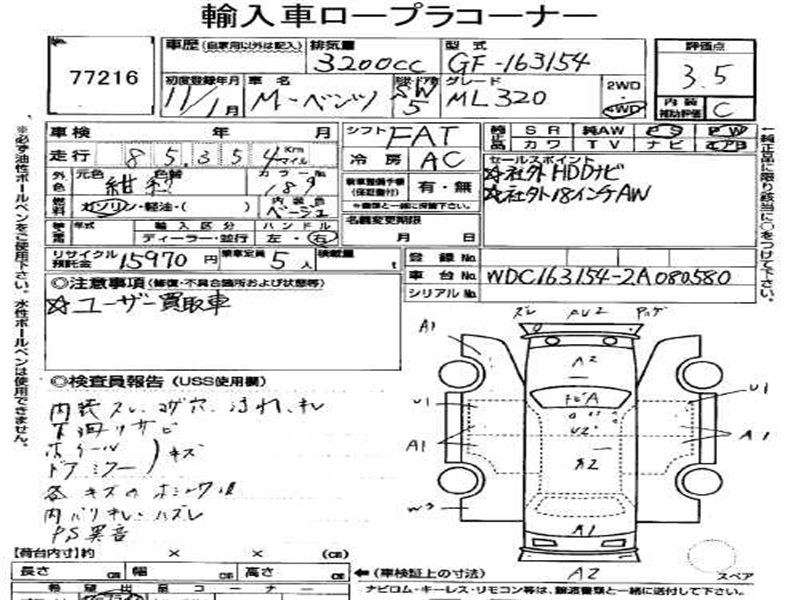 輸入車ロープラコーナー
77216
車歴 (自家用以外は記入) 排気量 3200cc 型式 GF-163154
評価点 3.5
内装補助評価 C
初度登録年月 11/1月 車名 M-ベンツ ドア数 SW 5 グレード ML320 2WD 4WD
車検 年 月 シフト FAT
純正品 SR 純AW PS PW
カワ TV ナビ エアB
走行 85,354 Km マイル 冷房 AC
セールスポイント
☆社外HDDナビ
☆社外18インチAW
外色 元色 紺 色替 カラーNo 189
(保証書付) 有・無
※書類と一緒に保管下さい。
燃料 ガソリン・軽油・( ) 内装色 ベージュ
名義変更期限
月 日
年式 輸入区分 ハンドル
ディーラー・並行 左・右
リサイクル預託金 15970円 乗車定員 5人 積載量 t
登録No.
車台No. WDC163154-2A080580
シリアルNo.
◎注意事項 (修復・不具合箇所および状態等)
☆ユーザー買取車
◎検査員報告 (USS使用欄)
内装スレ、コゲ穴、汚れ、キレ
下廻りサビ
ホイール
ドアミラー ) キズ
各キズ
内バリキレ、ハズレ
PS異音
A1
A2
U1
A1
W3
U2
A2
U1
A1
A1
A2
スペア
【荷台内寸】約 × × (cm)
長さ cm 幅 cm 高さ cm
←(車検証上の寸法)
希望出品コーナー
ナビロム・キーレス・リモコン等は、譲渡書類と一緒に送付して下さい。
※必ず油性ボールペンをご使用下さい。水性ボールペンは使用できません。
↑純正品に限り該当に○をつけて下さい。